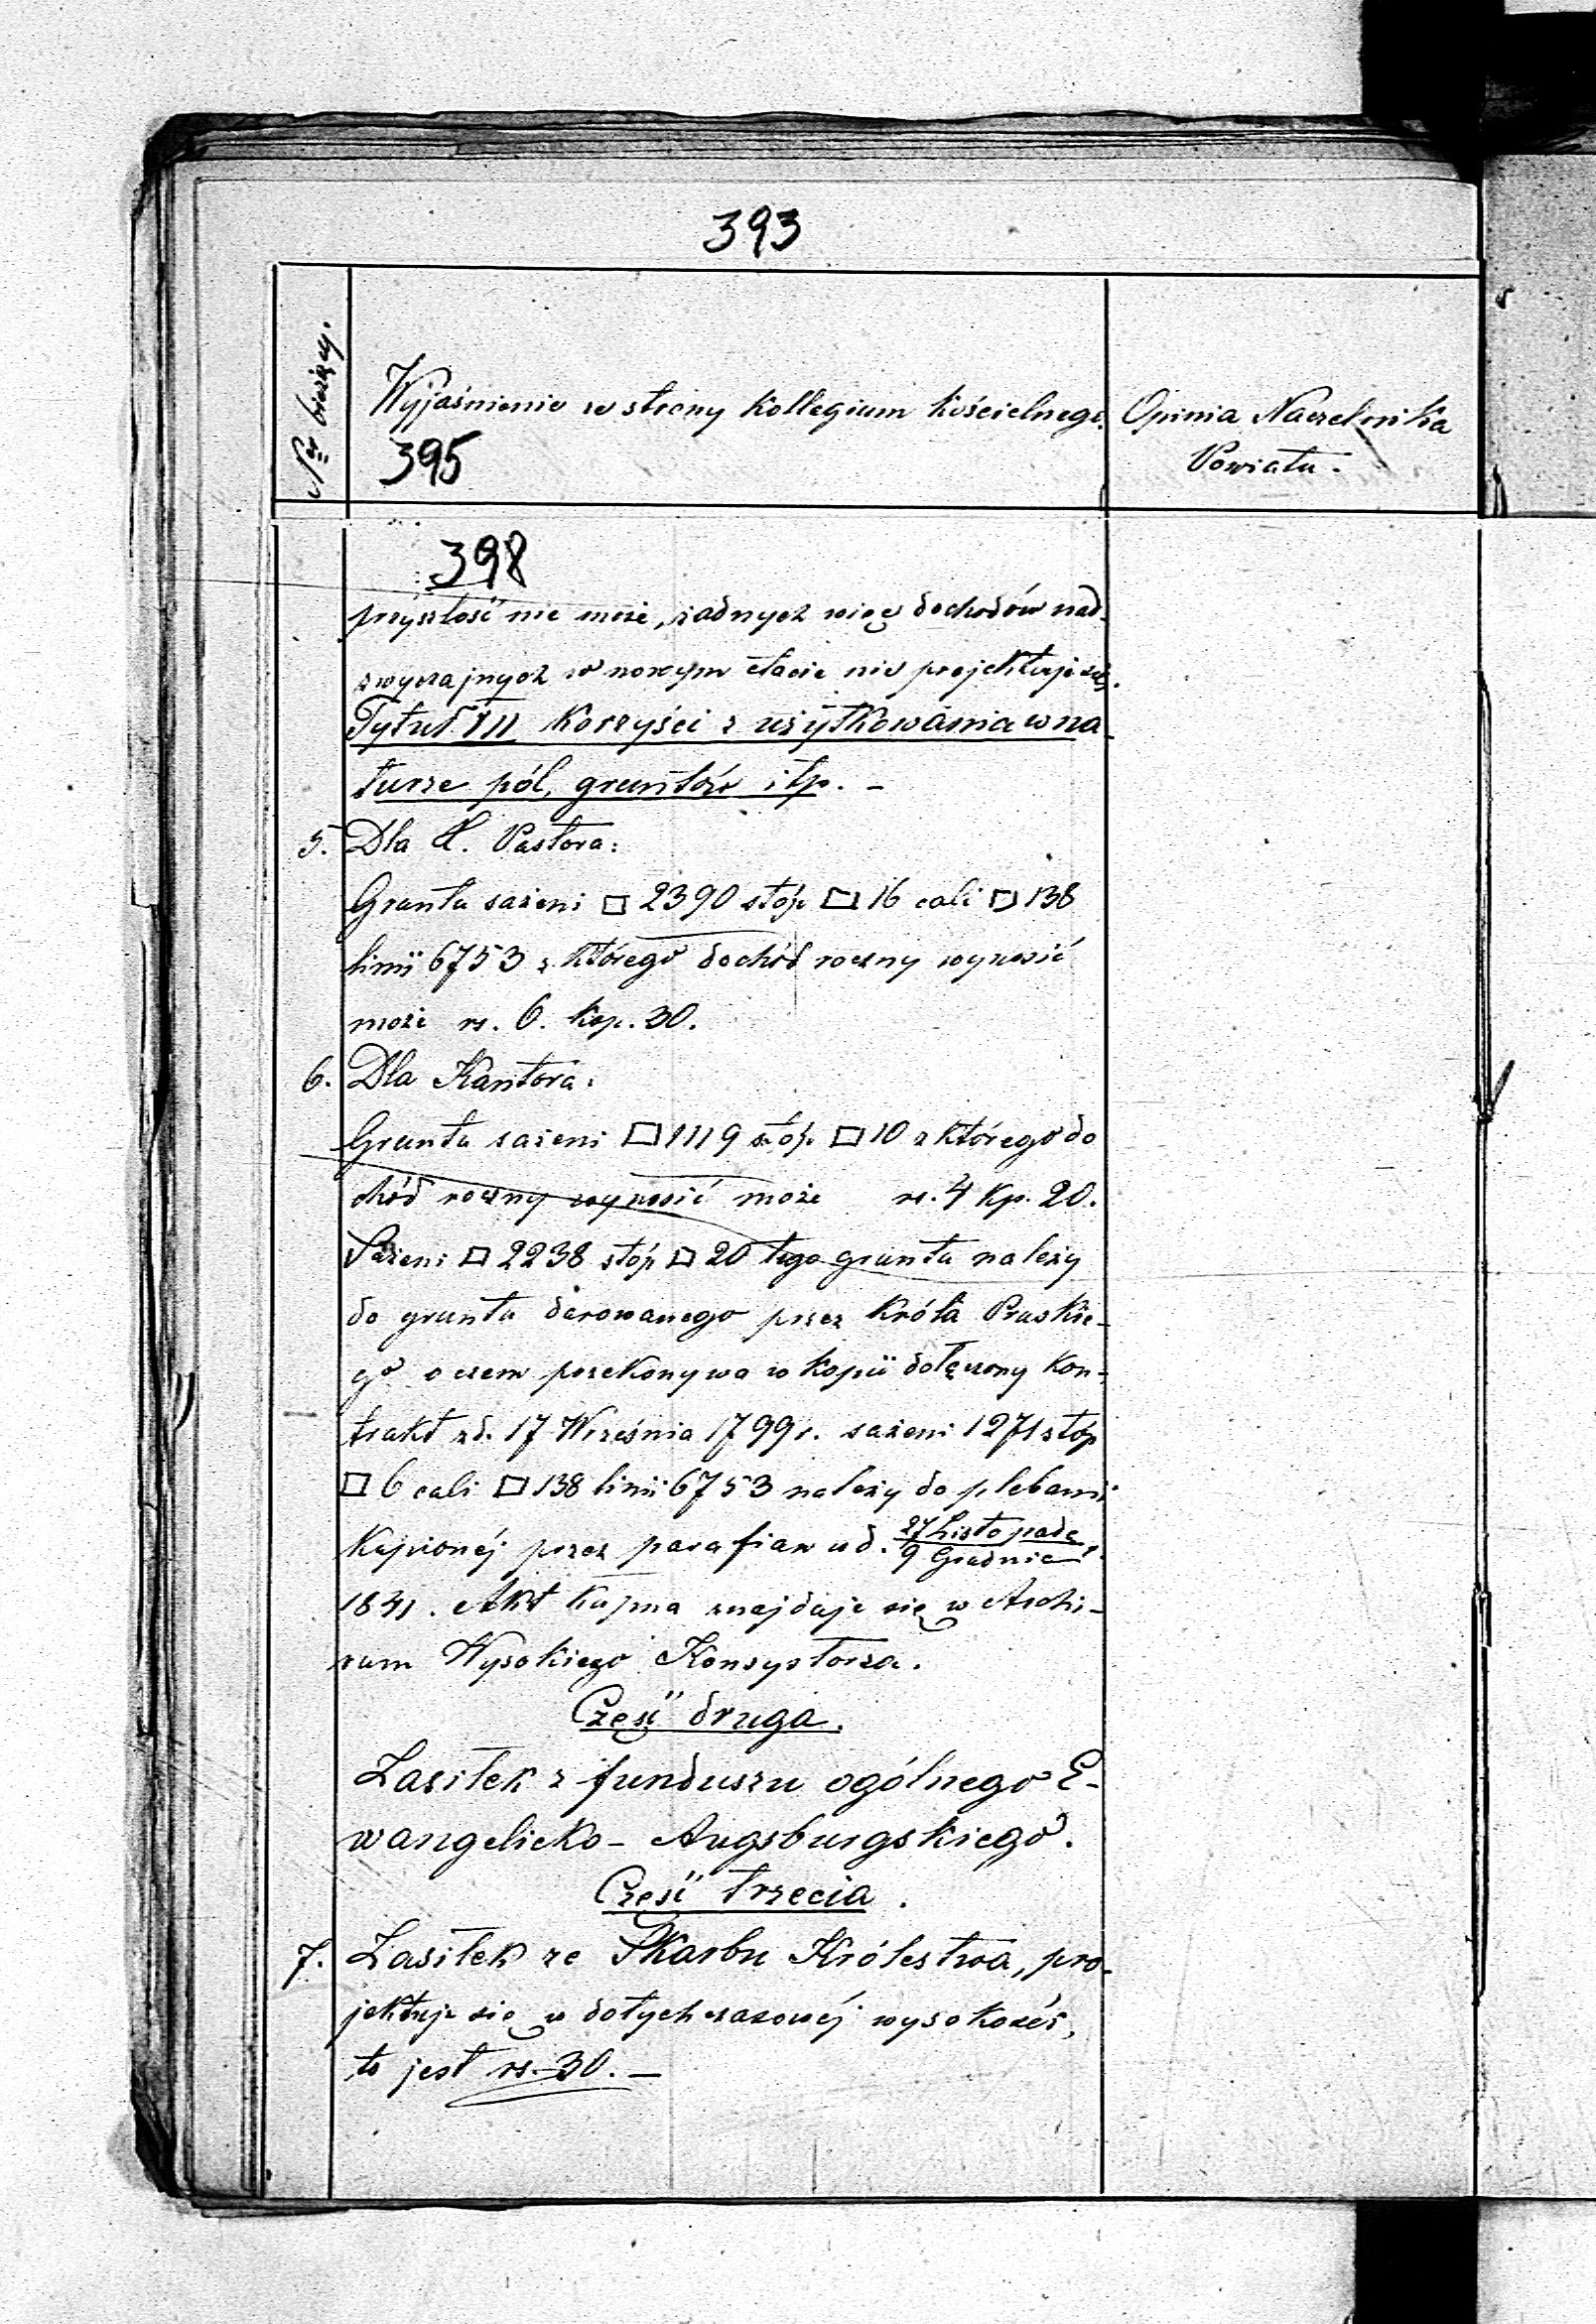 393
Nr bieżący.
Wyjaśnienie ze strony Kollegium Kościelnego.
Opinia Naczelnika
Powiatu.
395
398
przyszłość nie może, żadnych więc dochodów nad-
zwyczajnych w nowym etacie nie projektuje się.
Tytuł VII Korzyści z użytkowania w na-
turze pól, gruntów itp. –
5. Dla X. Pastora:
Gruntu sażeni □ 2390 stóp □ 16 cali □ 138
linii 6753 z którego dochód roczny wynosić
może rs. 6. kop. 30.
6. Dla Kantora:
Gruntu sażeni □ 1119 stóp □ 10 z którego do
chód roczny wynosić może rs. 4 kp. 20.
Sażeni □ 2238 stóp □ 20 tego gruntu należy
do gruntu darowanego przez Króla Pruskie-
go o czem przekonywa w kopii dołączony Kon-
trakt z d. 17 Września 1799 r. sażeni 1271 stóp
□ 6 cali □ 138 linii 6753 należy do plebanii
Kupionéj przez parafian w d. 27 Listopada
9 Grudnia
1841. Akt Kupna znajduje się w Archi-
vum Wysokiego Konsystorza.
Część druga.
Zasiłek z funduszu ogólnego E-
wangelicko-Augsburgskiego.
Część trzecia.
7. Zasiłek ze Skarbu Królestwa, pro-
jektuje się w dotychczasowéj wysokości,
to jest rs. 30. –